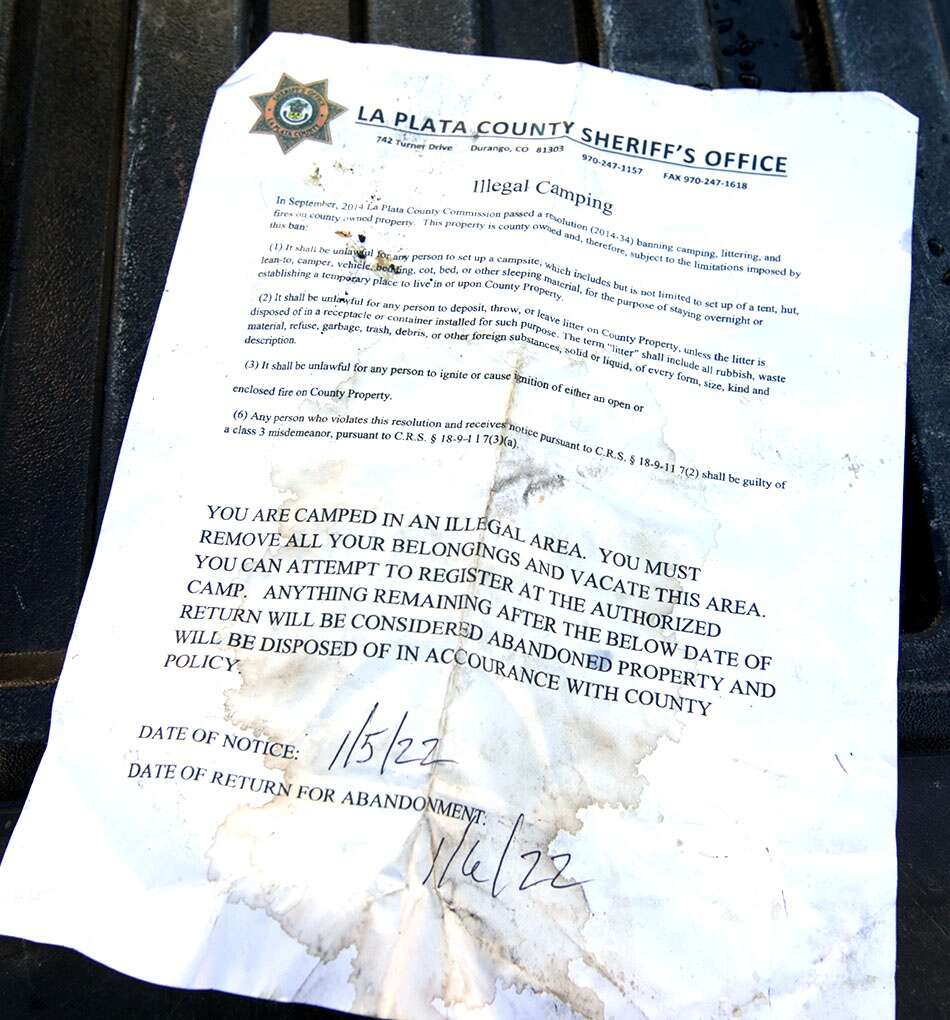 SHERIFF'S OFFICE
LA PLATA COUNTY
LA PLATA COUNTY SHERIFF'S OFFICE
742 Turner Drive Durango, CO 81303 970-247-1157 FAX 970-247-1618
Illegal Camping
In September, 2014 La Plata County Commission passed a resolution (2014-34) banning camping, littering, and
fires on county owned property. This property is county owned and, therefore, subject to the limitations imposed by
this ban:
(1) It shall be unlawful for any person to set up a campsite, which includes but is not limited to set up of a tent, hut,
lean-to, camper, vehicle, bedding, cot, bed, or other sleeping material, for the purpose of staying overnight or
establishing a temporary place to live in or upon County Property.
(2) It shall be unlawful for any person to deposit, throw, or leave litter on County Property, unless the litter is
disposed of in a receptacle or container installed for such purpose. The term "litter" shall include all rubbish, waste
material, refuse, garbage, trash, debris, or other foreign substances, solid or liquid, of every form, size, kind and
description.
(3) It shall be unlawful for any person to ignite or cause ignition of either an open or
enclosed fire on County Property.
(6) Any person who violates this resolution and receives notice pursuant to C.R.S. § 18-9-11 7(2) shall be guilty of
a class 3 misdemeanor, pursuant to C.R.S. § 18-9-1 1 7(3)(a).
YOU ARE CAMPED IN AN ILLEGAL AREA. YOU MUST
REMOVE ALL YOUR BELONGINGS AND VACATE THIS AREA.
YOU CAN ATTEMPT TO REGISTER AT THE AUTHORIZED
CAMP. ANYTHING REMAINING AFTER THE BELOW DATE OF
RETURN WILL BE CONSIDERED ABANDONED PROPERTY AND
WILL BE DISPOSED OF IN ACCOURANCE WITH COUNTY
POLICY.
DATE OF NOTICE: 1/5/22
DATE OF RETURN FOR ABANDONMENT:
1/6/22